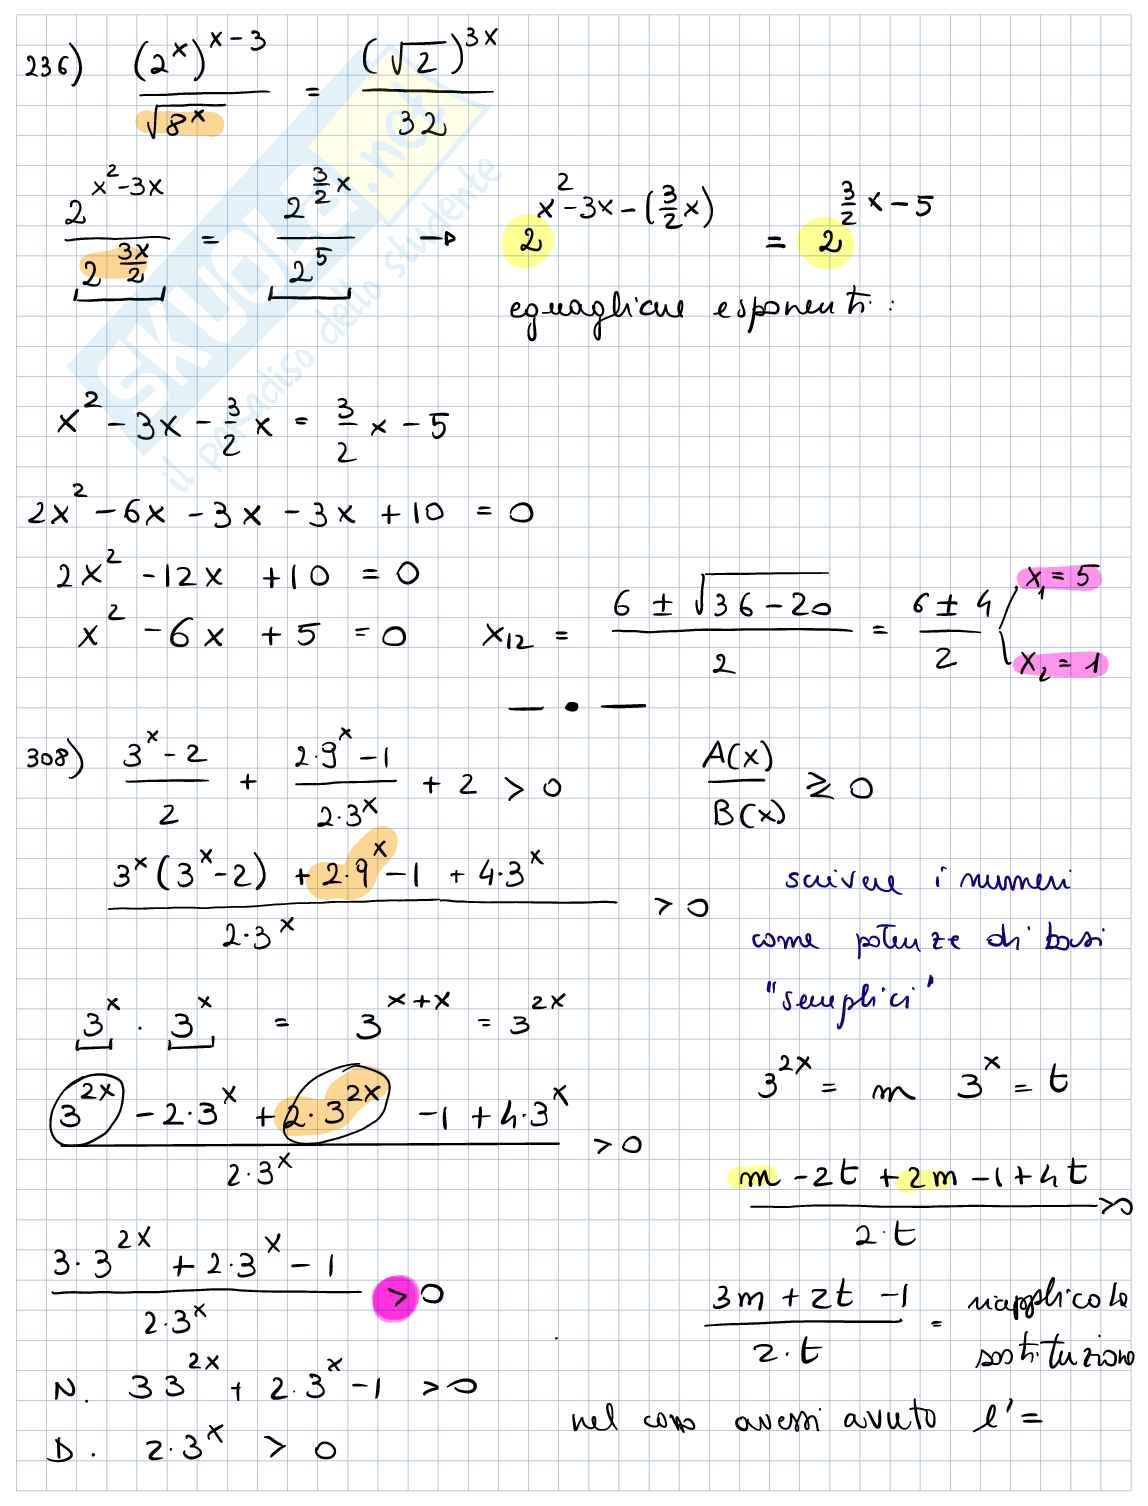 236) (2^x)^(x-3) / √8^x = (√2)^(3x) / 32
2^(x²-3x) / 2^(3x/2) = 2^(3/2 x) / 2^5 → 2^(x²-3x-(3/2 x)) = 2^(3/2 x - 5)
eguagliare esponenti:
x² - 3x - 3/2 x = 3/2 x - 5
2x² - 6x - 3x - 3x + 10 = 0
2x² - 12x + 10 = 0
x² - 6x + 5 = 0 x₁₂ = (6 ± √36-20) / 2 = (6 ± 4) / 2 x₁ = 5 x₂ = 1
308) (3^x - 2) / 2 + (2·9^x - 1) / (2·3^x) + 2 > 0 A(x) / B(x) ≥ 0
(3^x (3^x - 2) + 2·9^x - 1 + 4·3^x) / (2·3^x) > 0
scrivere i numeri
come potenze di basi
"semplici"
3^x · 3^x = 3^(x+x) = 3^(2x)
3^(2x) = m 3^x = t
(3^(2x) - 2·3^x + 2·3^(2x) - 1 + 4·3^x) / (2·3^x) > 0
(m - 2t + 2m - 1 + 4t) / (2·t) > 0
(3·3^(2x) + 2·3^x - 1) / (2·3^x) > 0
(3m + 2t - 1) / (2·t) = riapplico la
sostituzione
N. 3 3^(2x) + 2·3^x - 1 > 0
nel caso avessi avuto l'=
D. 2·3^x > 0
SKUOLA.net
il paradiso dello studente